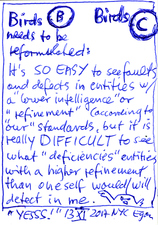 Birds B Birds C
needs to be
reformulated:
It's SO EASY to see faults
and defects in entities w/
a "lower intelligence" or
"refinement" (according to
our standards, but it is
really DIFFICULT to see
what "deficiencies" entities
with a higher refinement
than oneself would/will
detect in me.
"YESSS!" 13 XI 2017 NYC